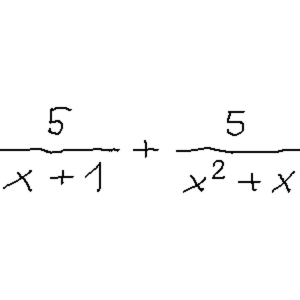 \frac{5}{x+1} + \frac{5}{x^2+x}